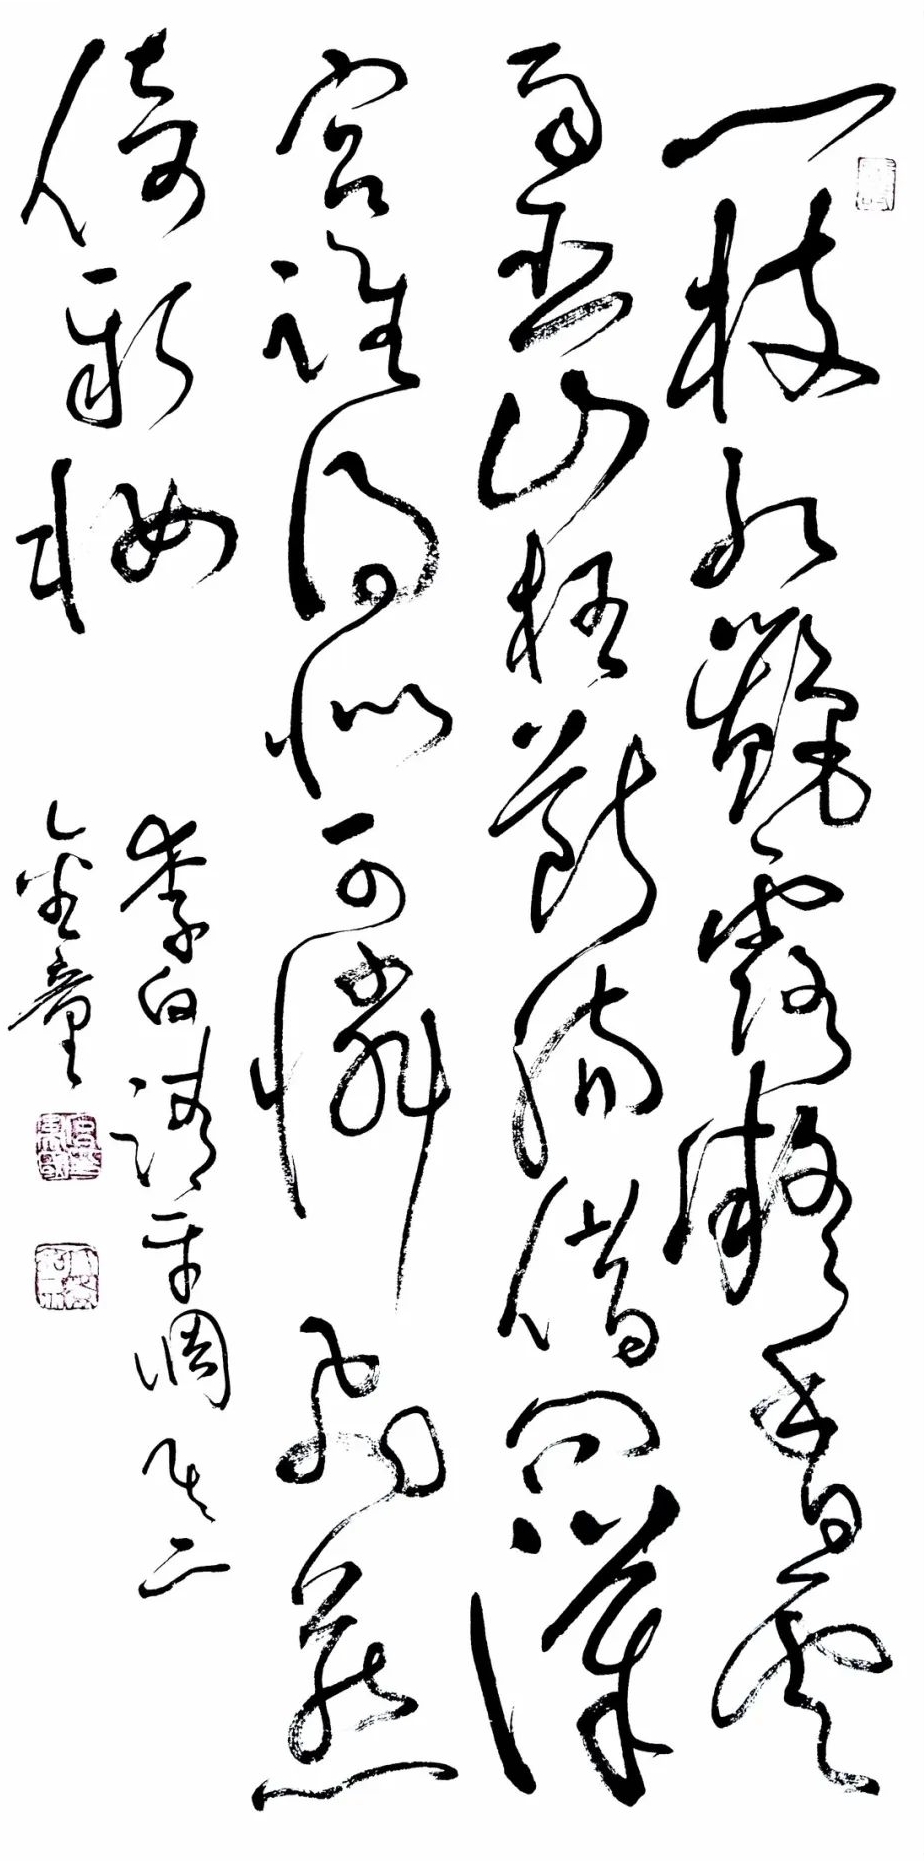 一枝红艳露凝香云
雨巫山枉断肠借问汉
宫谁得似可怜飞燕
倚新妆
李白清平调其二
金童